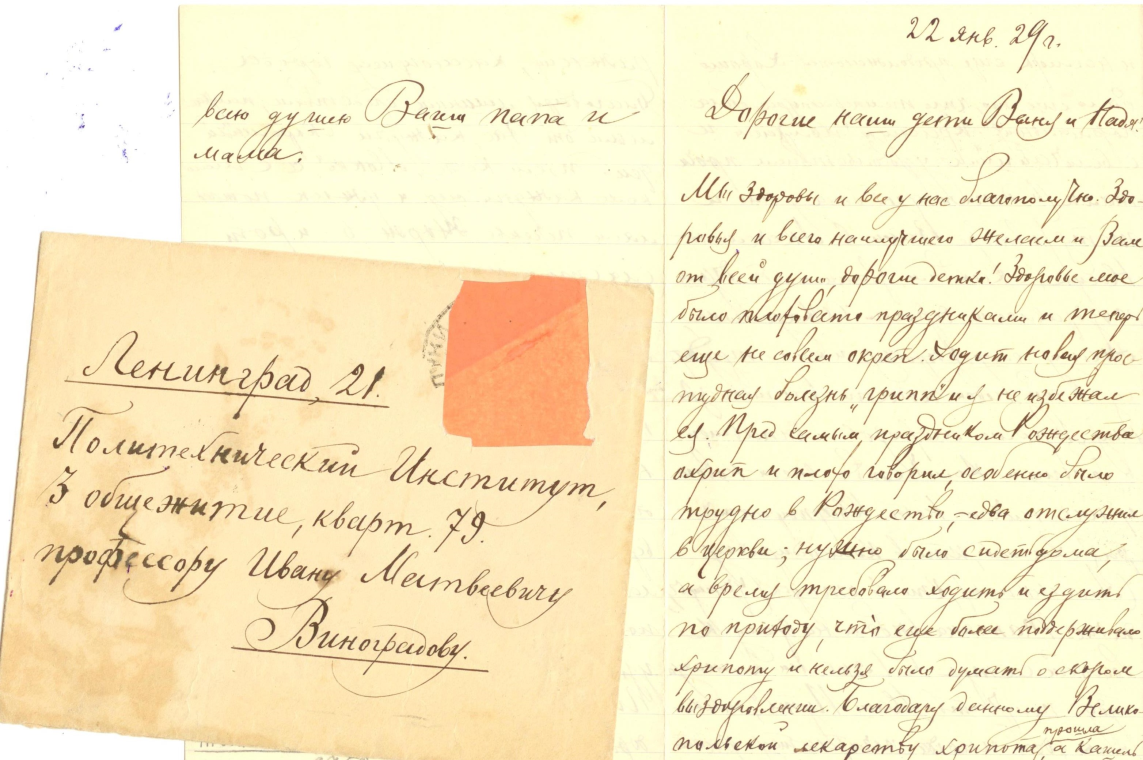 всею душею Ваши папа и
мама.
Ленинград, 21.
Политехнический Институт,
3 общежитие, кварт. 79.
профессору Ивану Матвеевичу
Виноградову.
22 янв. 29 г.
Дорогие наши дети Ваня и Надя!
Мы здоровы и все у нас благополучно. Здо-
ровья и всего наилучшего желаем и Вам
от всей души, дорогие детки! Здоровье мое
было плоховато праздниками и теперь
еще не совсем окреп. Ходит новая прос-
тудная болезнь "грипп" и я не избежал
ея. Пред самым праздником Рождества
охрип и плохо говорил, особенно было
трудно в Рождество, - едва отслужил
в церкви; нужно было сидеть дома,
а время требовало ходить и ездить
по приходу, что еще более поддерживало
хрипоту и нельзя было думать о скором
выздоровлении. Благодаря данному Велико-
польской лекарству хрипота прошла, а кашель